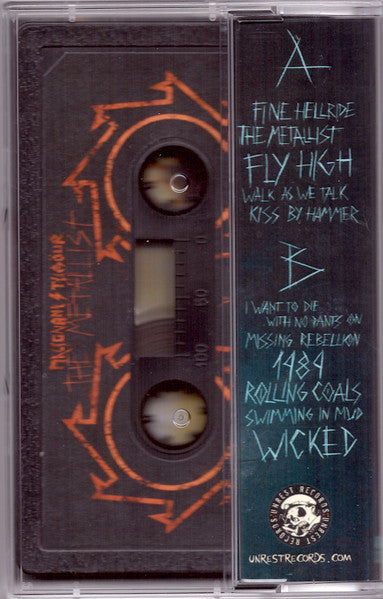 A
FINE HELLRIDE
THE METALLIST
FLY HIGH
WALK AS WE TALK
KISS BY HAMMER
B
I WANT TO DIE
WITH NO PANTS ON
MISSING REBELLION
1984
ROLLING COALS
SWIMMING IN MUD
WICKED
UNREST RECORDS · UNREST RECORDS
UNRESTRECORDS.COM
THE METALLIST
0
50
100